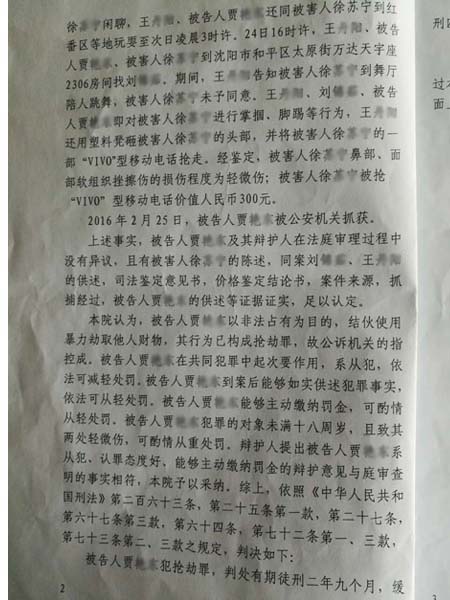 徐 闲聊，王 、被告人贾 还同被害人徐 到红
番区等地玩耍至次日凌晨3时许。24日16时许，王 、被告
人贾 、被害人徐 到沈阳市和平区太原街万达天宇座
2306房间找刘 。期间，王 告知被害人徐 到舞厅
陪人跳舞，被害人徐 未予同意。王 、刘 、被告
人贾 即对被害人徐 进行掌掴、脚踢等行为，王
还用塑料凳砸被害人徐 的头部，并将被害人徐 的一
部“VIVO”型移动电话抢走。经鉴定，被害人徐 鼻部、面
部软组织挫擦伤的损伤程度为轻微伤；被害人徐 被抢
“VIVO”型移动电话价值人民币300元。
2016年2月25日，被告人贾 被公安机关抓获。
上述事实，被告人贾 及其辩护人在法庭审理过程中
没有异议，且有被害人徐 的陈述，同案刘 、王
的供述，司法鉴定意见书，价格鉴定结论书，案件来源，抓
捕经过，被告人贾 的供述等证据证实，足以认定。
本院认为，被告人贾 以非法占有为目的，结伙使用
暴力劫取他人财物，其行为已构成抢劫罪，故公诉机关的指
控成立。被告人贾 在共同犯罪中起次要作用，系从犯，依
法可减轻处罚。被告人贾 到案后能够如实供述犯罪事实，
依法可从轻处罚。被告人贾 能够主动缴纳罚金，可酌情
从轻处罚。被告人贾 犯罪的对象未满十八周岁，且致其
两处轻微伤，可酌情从重处罚。辩护人提出被告人贾 系
从犯、认罪态度好、能够主动缴纳罚金的辩护意见与庭审查
明的事实相符，本院予以采纳。综上，依照《中华人民共和
国刑法》第二百六十三条，第二十五条第一款，第二十七条，
第六十七条第三款，第六十四条，第七十二条第一、三款，
第七十三条第二、三款之规定，判决如下：
被告人贾 犯抢劫罪，判处有期徒刑二年九个月，缓
2
刑
过
面
3